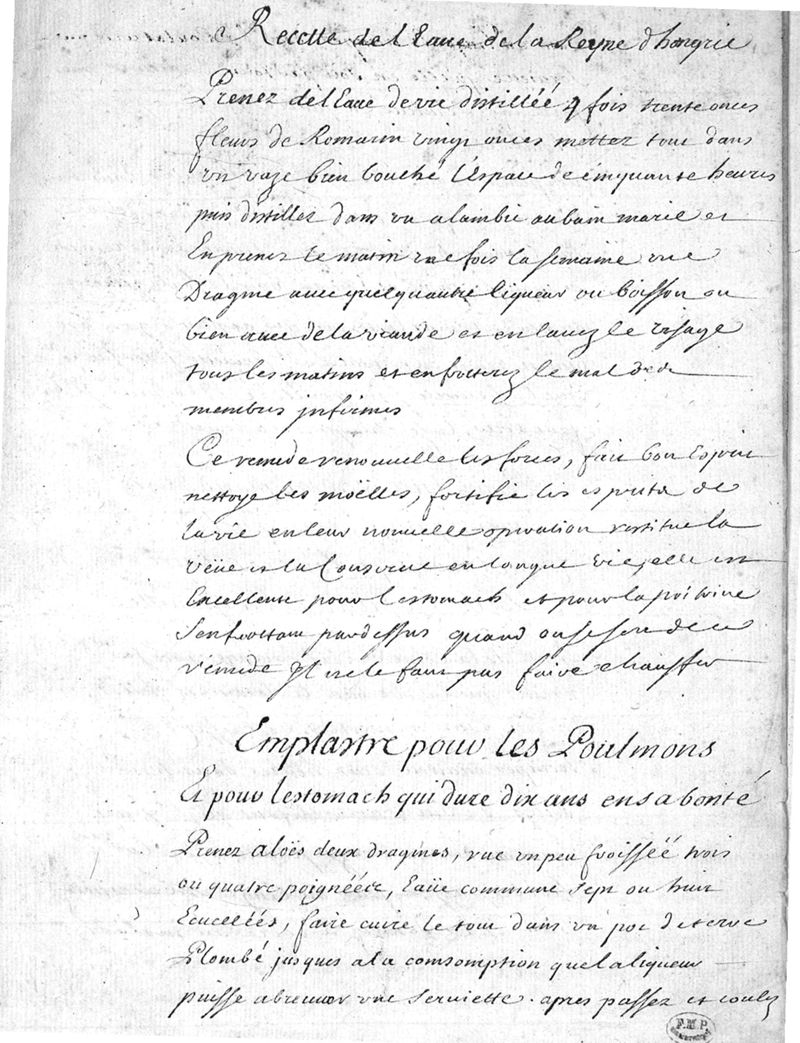 Recette de l Eaue de la Reyne d hongrie
Prenez de l Eaue de vie distilléé 4 fois trente onces
fleurs de Romarin vingt onces mettez tout dans
vn vaze bien bouché l Espace de cinquante heures
puis distillez dans vn alambic au bain marie et
En prenez le matin vne fois la semaine vne
Dragme auec quelqu autre liqueur ou boisson ou
bien auec de la viande et en lauez le visage
tous les matins et en frotterez le mal des
membres jnfirmes
Ce remede renouuelle les forces, fait bon Esprit
nettoye les moëlles, fortifie les esprits de
la vie en leur nouuelle operation restitue la
veüe et la Conserue en longue vie, elle est
Excellente pour l estomach et pour la poitrine
s en frottant par dessus quand on se sert de ce
remede Jl ne le faut pas faire chauffer
Emplastre pour les Poulmons
Et pour lestomach qui dure dix ans en sa bonté
Prenez aloës deux dragmes, rue vn peu froisséé trois
ou quatre poignéés, Eaüe commune sept ou huit
Ecuelléés, faire cuire le tout dans vn pot de terre
Plombé jusques a la comsomption que la liqueur
puisse abreuuer vne seruiette. apres passez et coulez